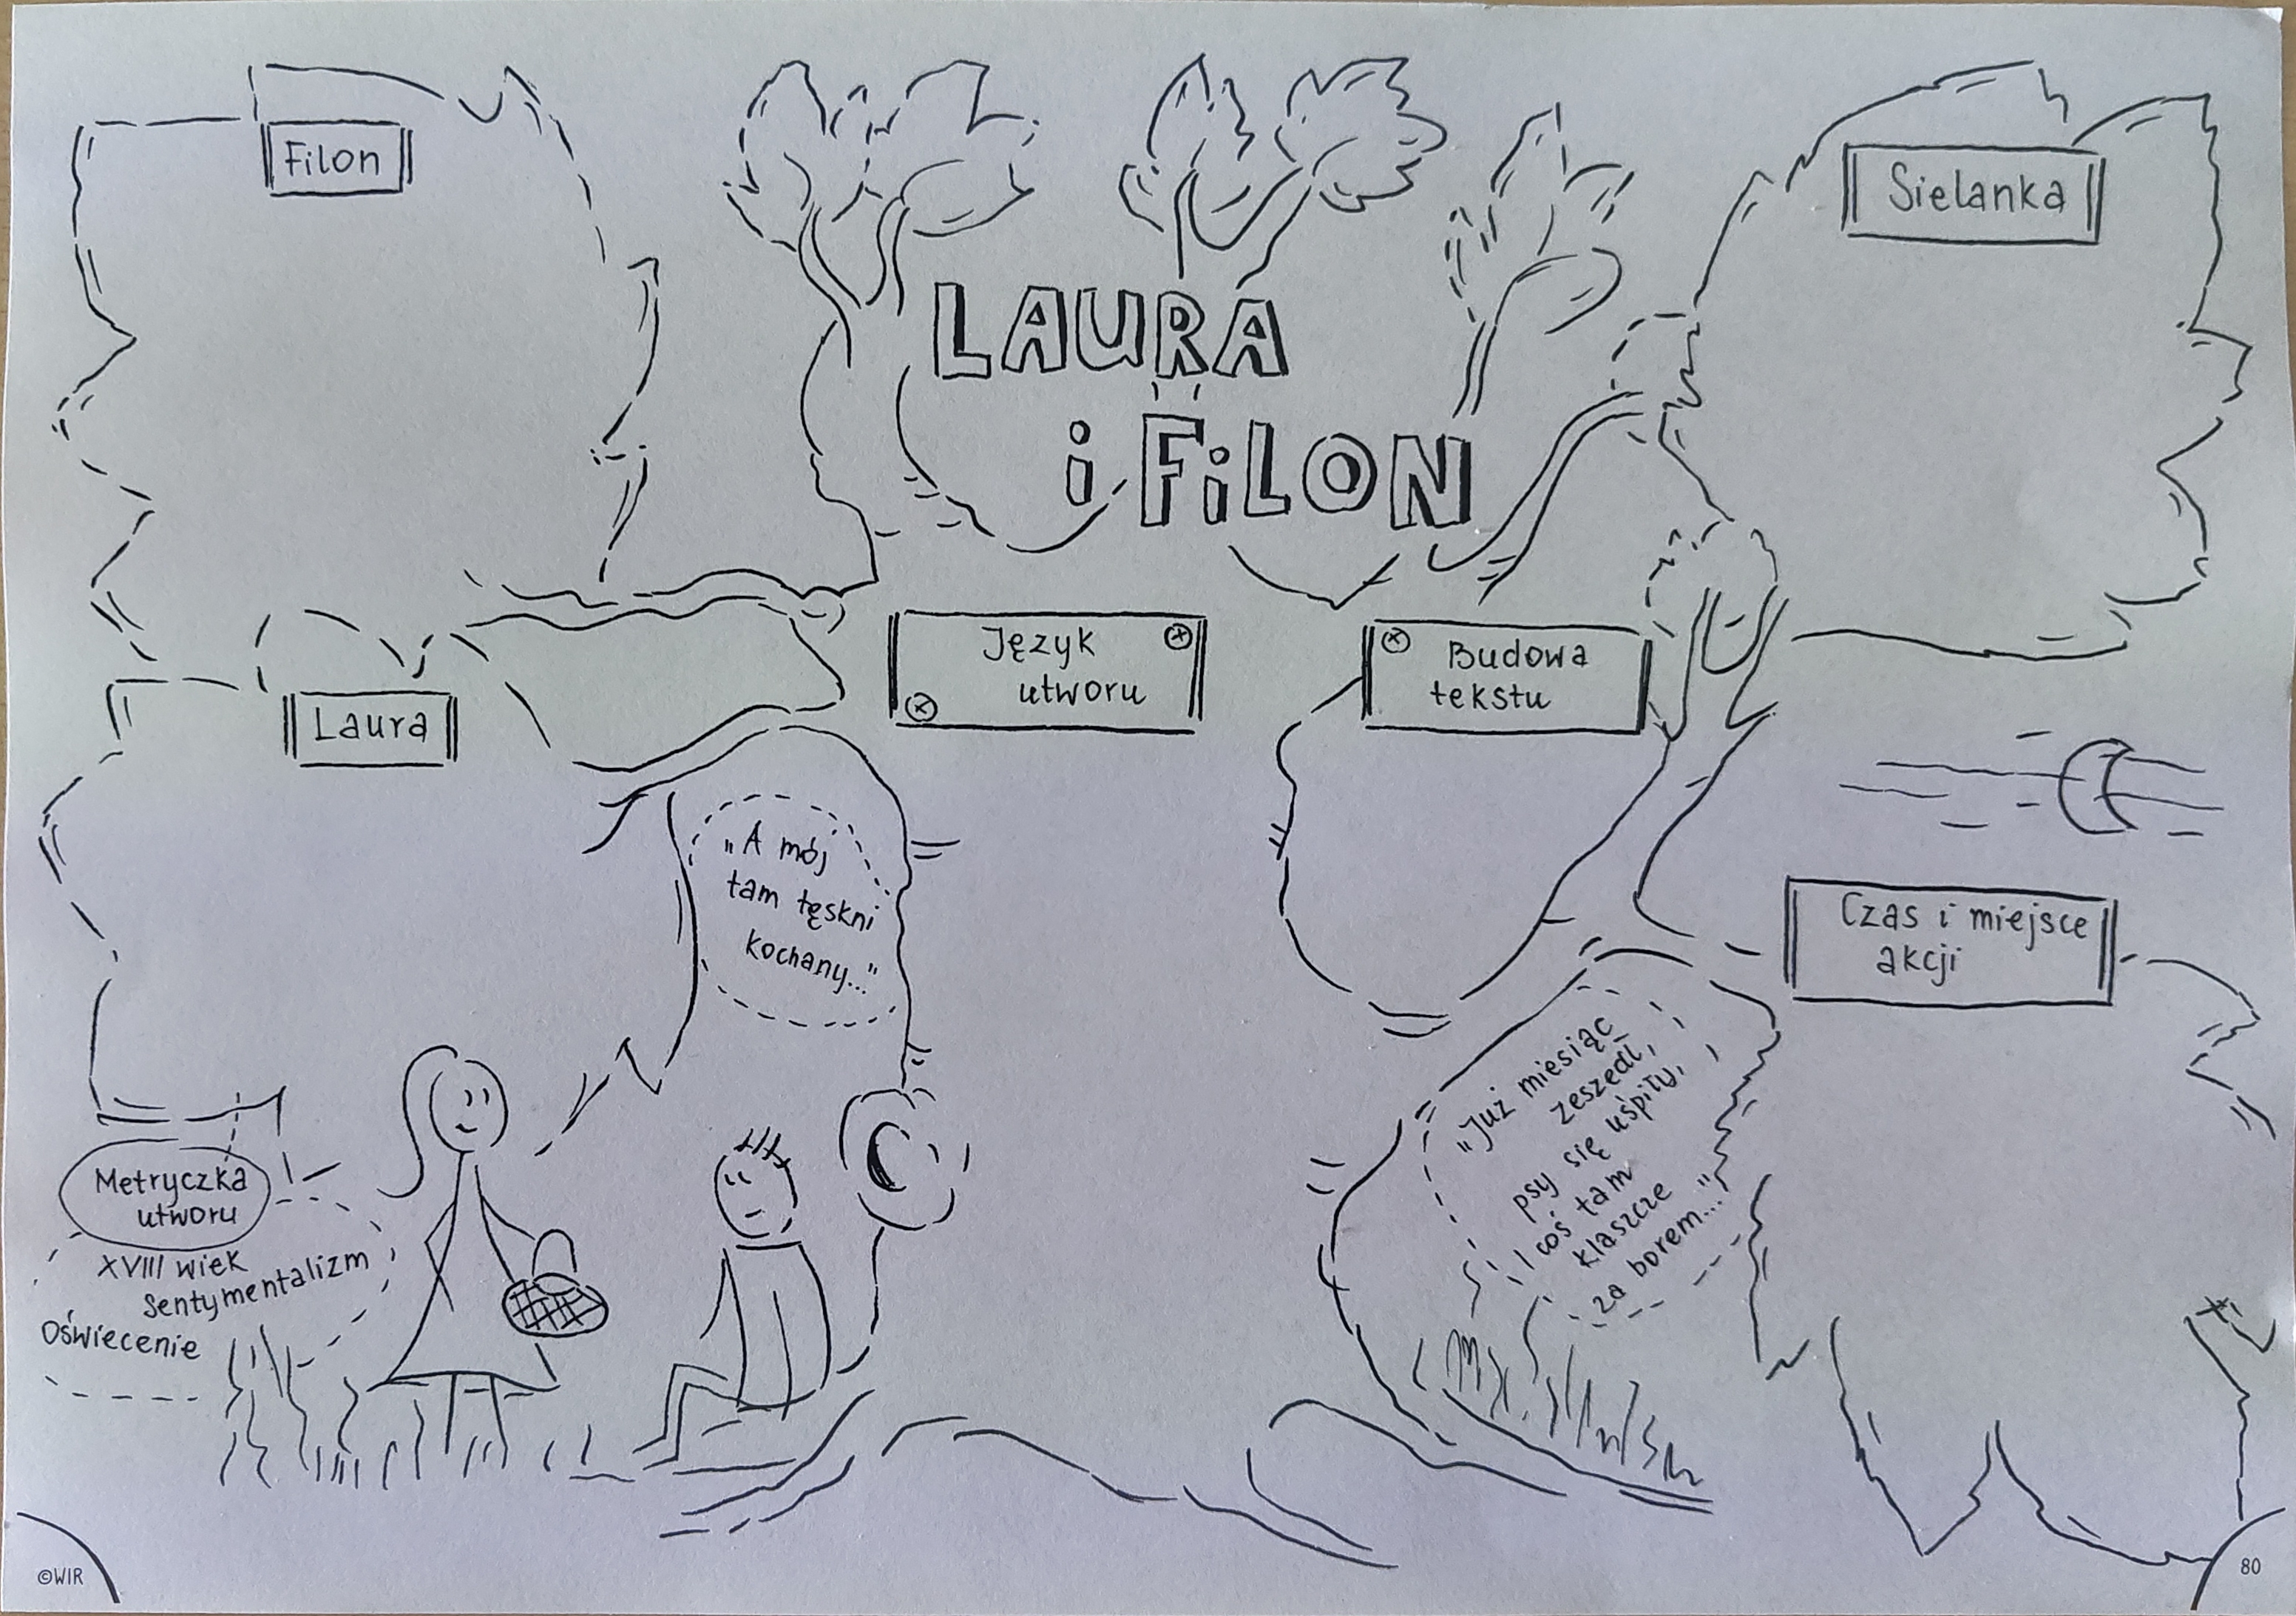 Filon
LAURA
i FiLON
Sielanka
Laura
Język
utworu
Budowa
tekstu
„A mój
tam tęskni
kochany..."
Czas i miejsce
akcji
„Już miesiąc
zeszedł,
psy się uśpiły,
I coś tam
klaszcze
za borem..."
Metryczka
utworu
XVIII wiek
Sentymentalizm
Oświecenie
©WIR
80